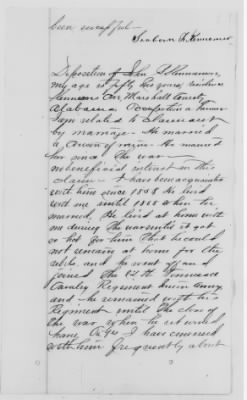 been
Seaborn F. Kennamer
Deposition of John A Kennamer
my age is fifty five years, residence
Kennamer Cove, Marshall County,
Alabama Occupation a farmer
I am related to Claimant
by marriage. He married
a Cousin of mine. He married
her since the war
no beneficial interest in this
claim. I have been acquainted
with him since 1858 He lived
with me until 1868 when he
married. He lived at home with
me during the war until it got
so hot for him that he could
not remain at home for the
rebs, and he went off and
joined the 12th Tennessee
Cavalry Regiment Union Army
and he remained with his
Regiment until the close of
the war, when he returned
home I have conversed
with him frequently about